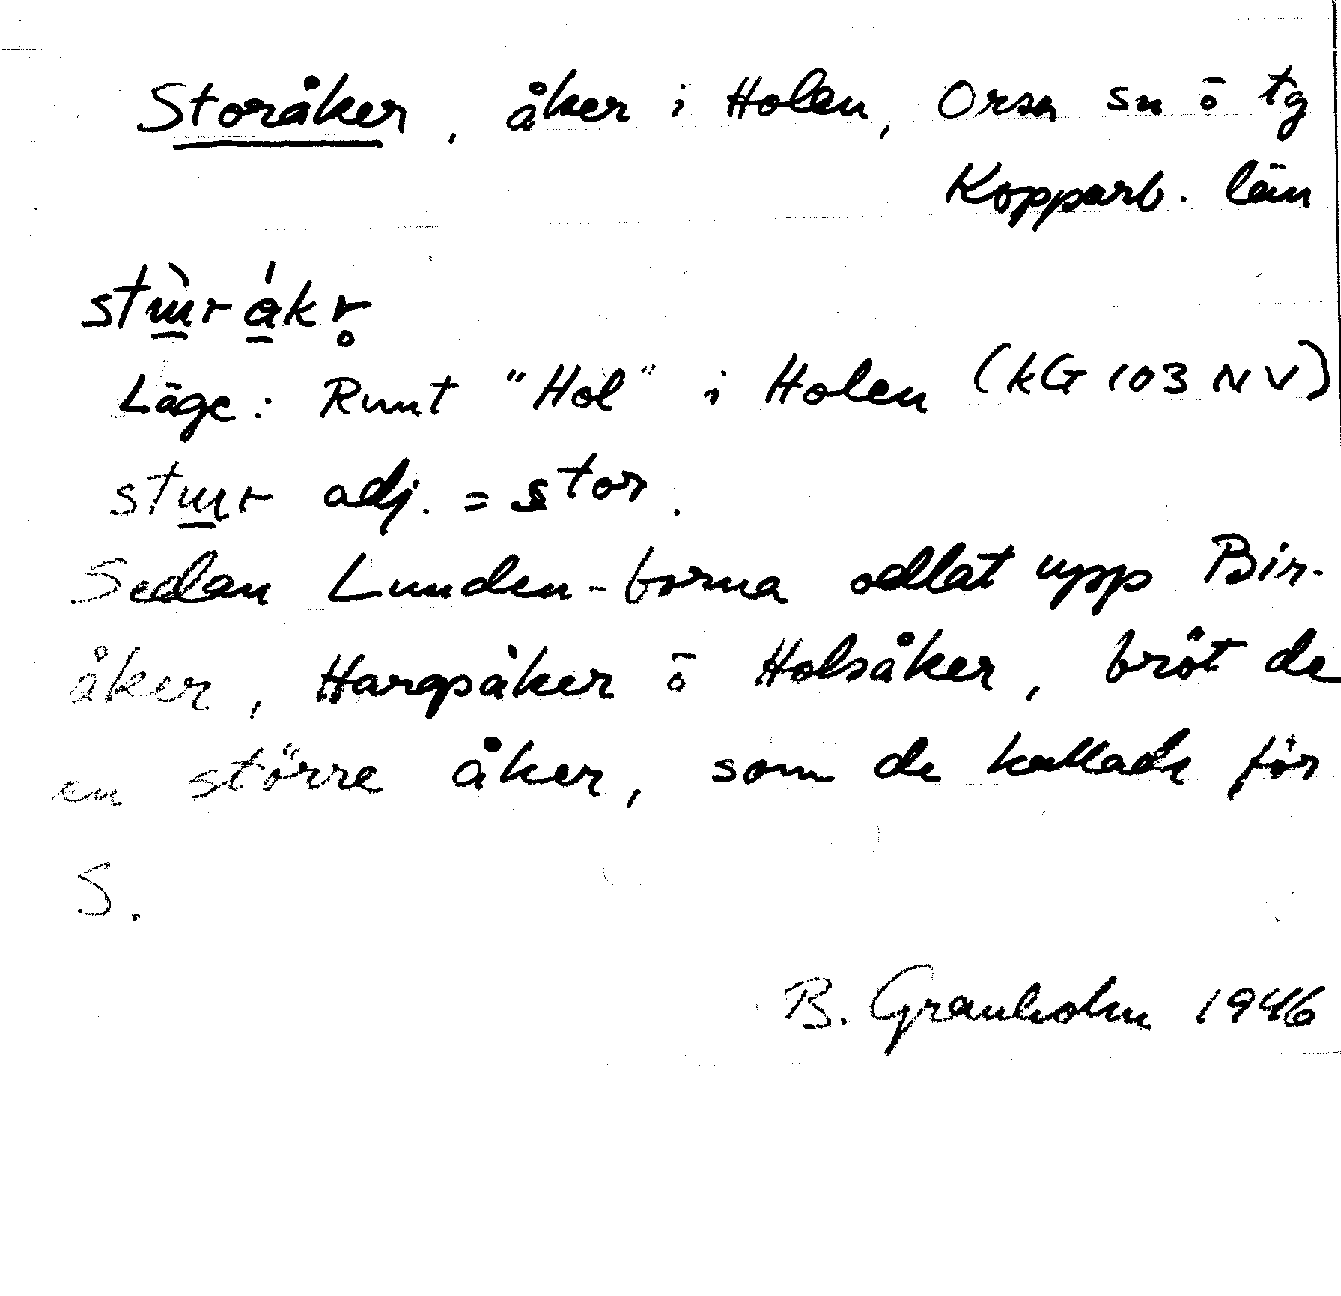 Storåker, åker i Holen, Orsa sn ō tg
Kopparb. län
Läge: Runt "Hol" i Holen (kG 103 NV)
adj. = stor.
Sedan Lunden-borna odlat upp Bir-
åker, Hargsåker ō Holsåker, bröt de
en större åker, som de kallade för
S.
B. Granholm 1946